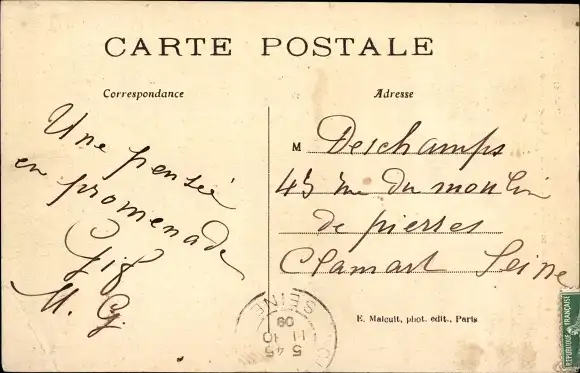 CARTE POSTALE
Correspondance
Adresse
Une pensée
en promenade
Gif
M. G.
M Deschamps
45 rue du moulin
de pierres
Clamart Seine
E. Malcuit, phot. edit., Paris
SEINE
5 45
11 10
09
REPUBLIQUE FRANÇAISE